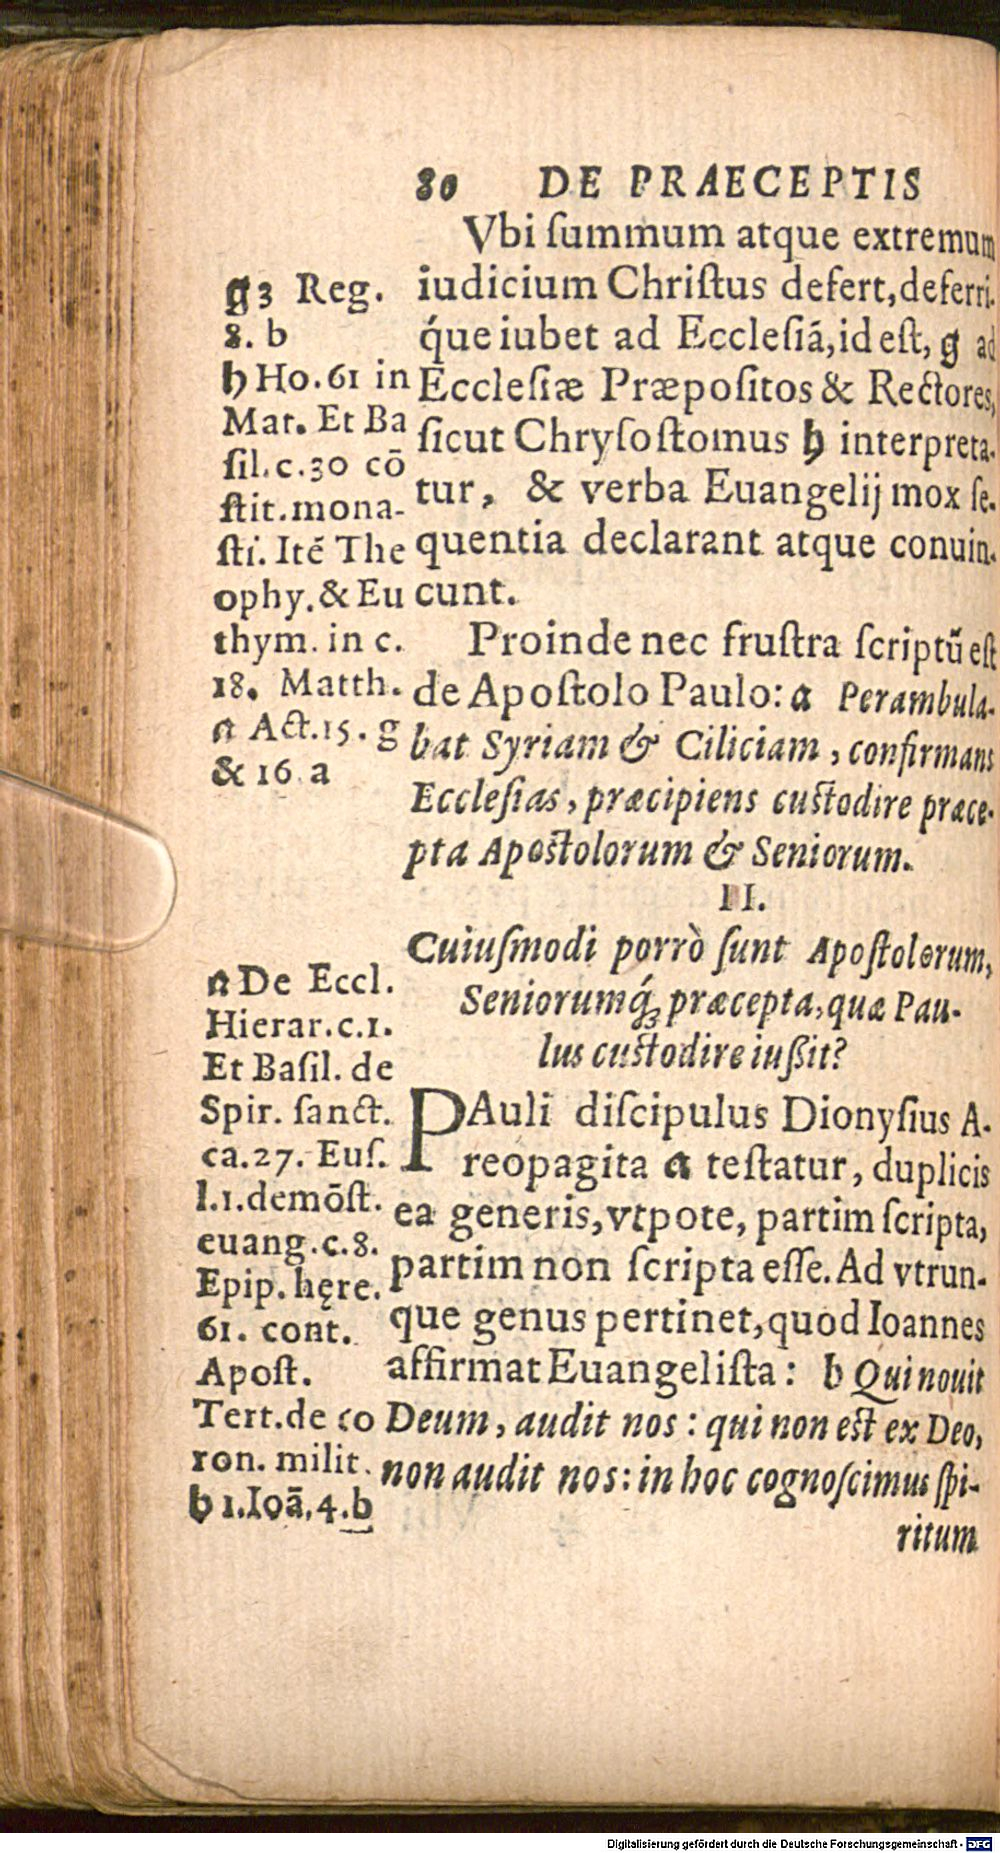 80 DE PRAECEPTIS
Vbi ſummum atque extremum
iudicium Chriſtus defert, deferri-
q́ue iubet ad Ecclesiā, id eſt, g ad
Ecclesiæ Præpoſitos & Rectores,
ſicut Chryſoſtomus h interpreta-
tur, & verba Euangelij mox ſe-
quentia declarant atque conuin-
cunt.
Proinde nec fruſtra ſcriptū eſt
de Apoſtolo Paulo: a Perambula-
bat Syriam & Ciliciam, confirmans
Eccleſias, præcipiens cuſtodire præce-
pta Apoſtolorum & Seniorum.
g 3 Reg.
8. b
h Ho. 61 in
Mat. Et Ba
ſil. c. 30 cō
ſtit. mona-
ſti. Itē The
ophy. & Eu
thym. in c.
18. Matth.
a Act. 15. g
& 16 a
II.
Cuiuſmodi porrò ſunt Apoſtolorum,
Seniorumq́; præcepta, quæ Pau-
lus cuſtodire iußit?
PAuli diſcipulus Dionyſius A-
reopagita a teſtatur, duplicis
ea generis, vtpote, partim ſcripta,
partim non ſcripta eſſe. Ad vtrun-
que genus pertinet, quod Ioannes
affirmat Euangeliſta: b Qui nouit
Deum, audit nos: qui non eſt ex Deo,
non audit nos: in hoc cognoſcimus ſpi-
ritum
a De Eccl.
Hierar. c. 1.
Et Baſil. de
Spir. ſanct.
ca. 27. Euſ.
l. 1. demōſt.
euang. c. 8.
Epip. hęre.
61. cont.
Apoſt.
Tert. de co
ron. milit.
b 1. Ioā. 4. b
Digitalisierung gefördert durch die Deutsche Forschungsgemeinschaft - DFG